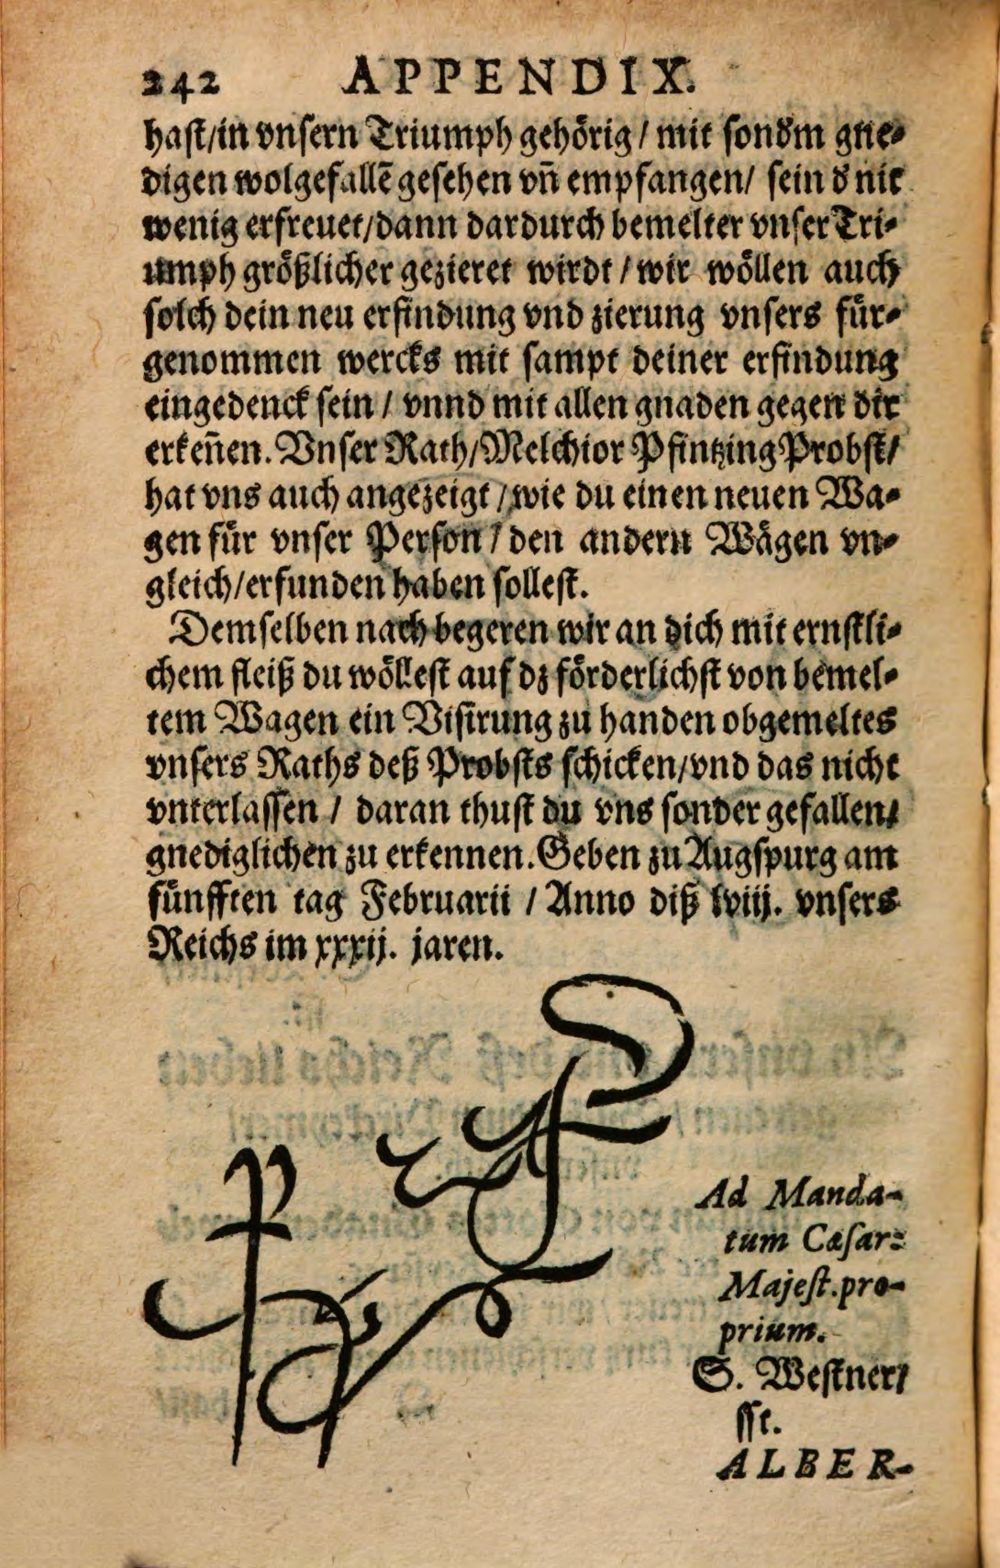 242 APPENDIX.
hast/in vnsern Triumph gehörig / mit sond'm gne-
digen wolgefallē gesehen vñ empfangen/ sein d' nit
wenig erfreuet/dann dardurch bemelter vnser Tri-
umph größlicher gezieret wirdt / wir wöllen auch
solch dein neu erfindung vnd zierung vnsers für-
genommen wercks mit sampt deiner erfindung
eingedenck sein / vnnd mit allen gnaden gegen dir
erkeñen. Vnser Rath/Melchior Pfintzing Probst/
hat vns auch angezeigt / wie du einen neuen Wa-
gen für vnser Person / den andern Wägen vn-
gleich/erfunden haben sollest.
Demselben nach begeren wir an dich mit ernstli-
chem fleiß du wöllest auf dz förderlichst von bemel-
tem Wagen ein Visirung zu handen obgemeltes
vnsers Raths deß Probsts schicken/vnd das nicht
vnterlassen / daran thust du vns sonder gefallen/
gnediglichen zu erkennen. Geben zu Augspurg am
fünfften tag Februarii / Anno diß lviij. vnsers
Reichs im xxxij. jaren.
Ad Manda-
tum Cæsar:
Majest. pro-
prium.
S. Westner/
sst.
ALBER-